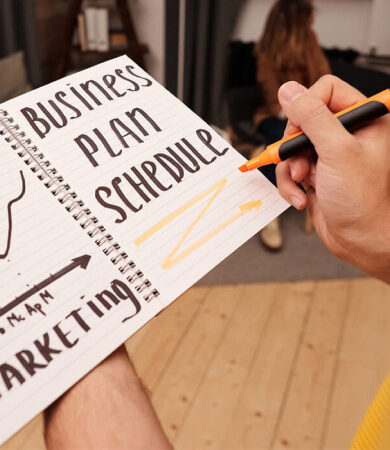 Business
Plan
Schedule
Mc Apm
arketing